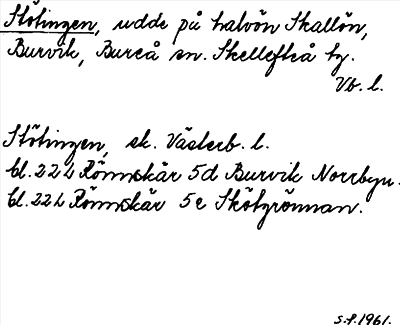 Stötingen, udde på halvön Skallön,
Burvik, Bureå sn. Skellefteå tg.
Vb. l.
Stötingen, ek. Västerb. l.
bl. 22 L Rönnskär 5d Burvik Norrbyn.
bl. 22 L Rönnskär 5e Skötgrönnan.
S.P. 1961.